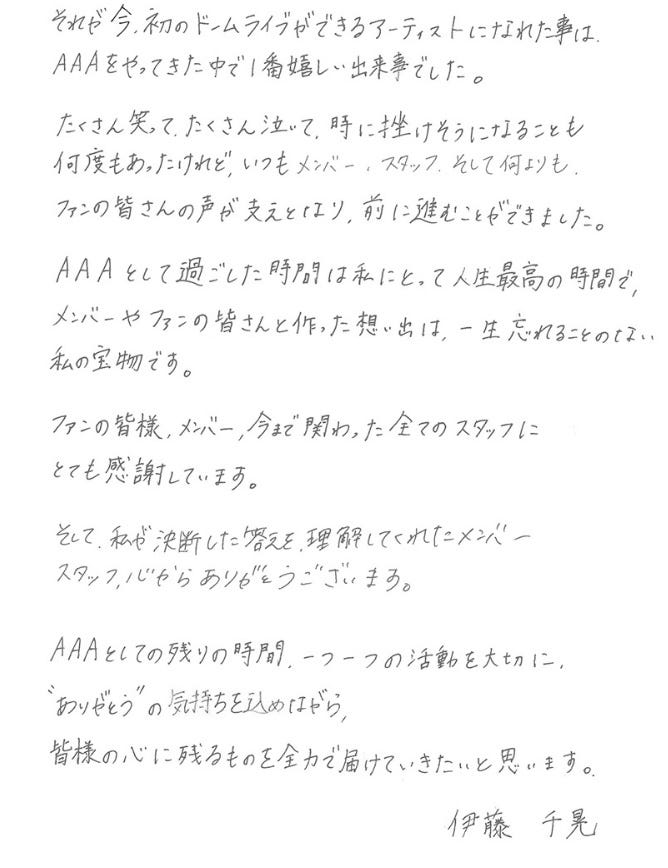 それが今、初のドームライブができるアーティストになれた事は、
AAAをやってきた中で1番嬉しい出来事でした。
たくさん笑って、たくさん泣いて、時に挫けそうになることも
何度もあったけれど、いつもメンバー、スタッフ、そして何よりも、
ファンの皆さんの声が支えとなり、前に進むことができました。
AAAとして過ごした時間は私にとって人生最高の時間で、
メンバーやファンの皆さんと作った想い出は、一生忘れることのない
私の宝物です。
ファンの皆様、メンバー、今まで関わった全てのスタッフに
とても感謝しています。
そして、私が決断した答えを、理解してくれたメンバー
スタッフ、心からありがとうございます。
AAAとしての残りの時間、一つ一つの活動を大切に、
“ありがとう”の気持ちを込めながら、
皆様の心に残るものを全力で届けていきたいと思います。
伊藤 千晃